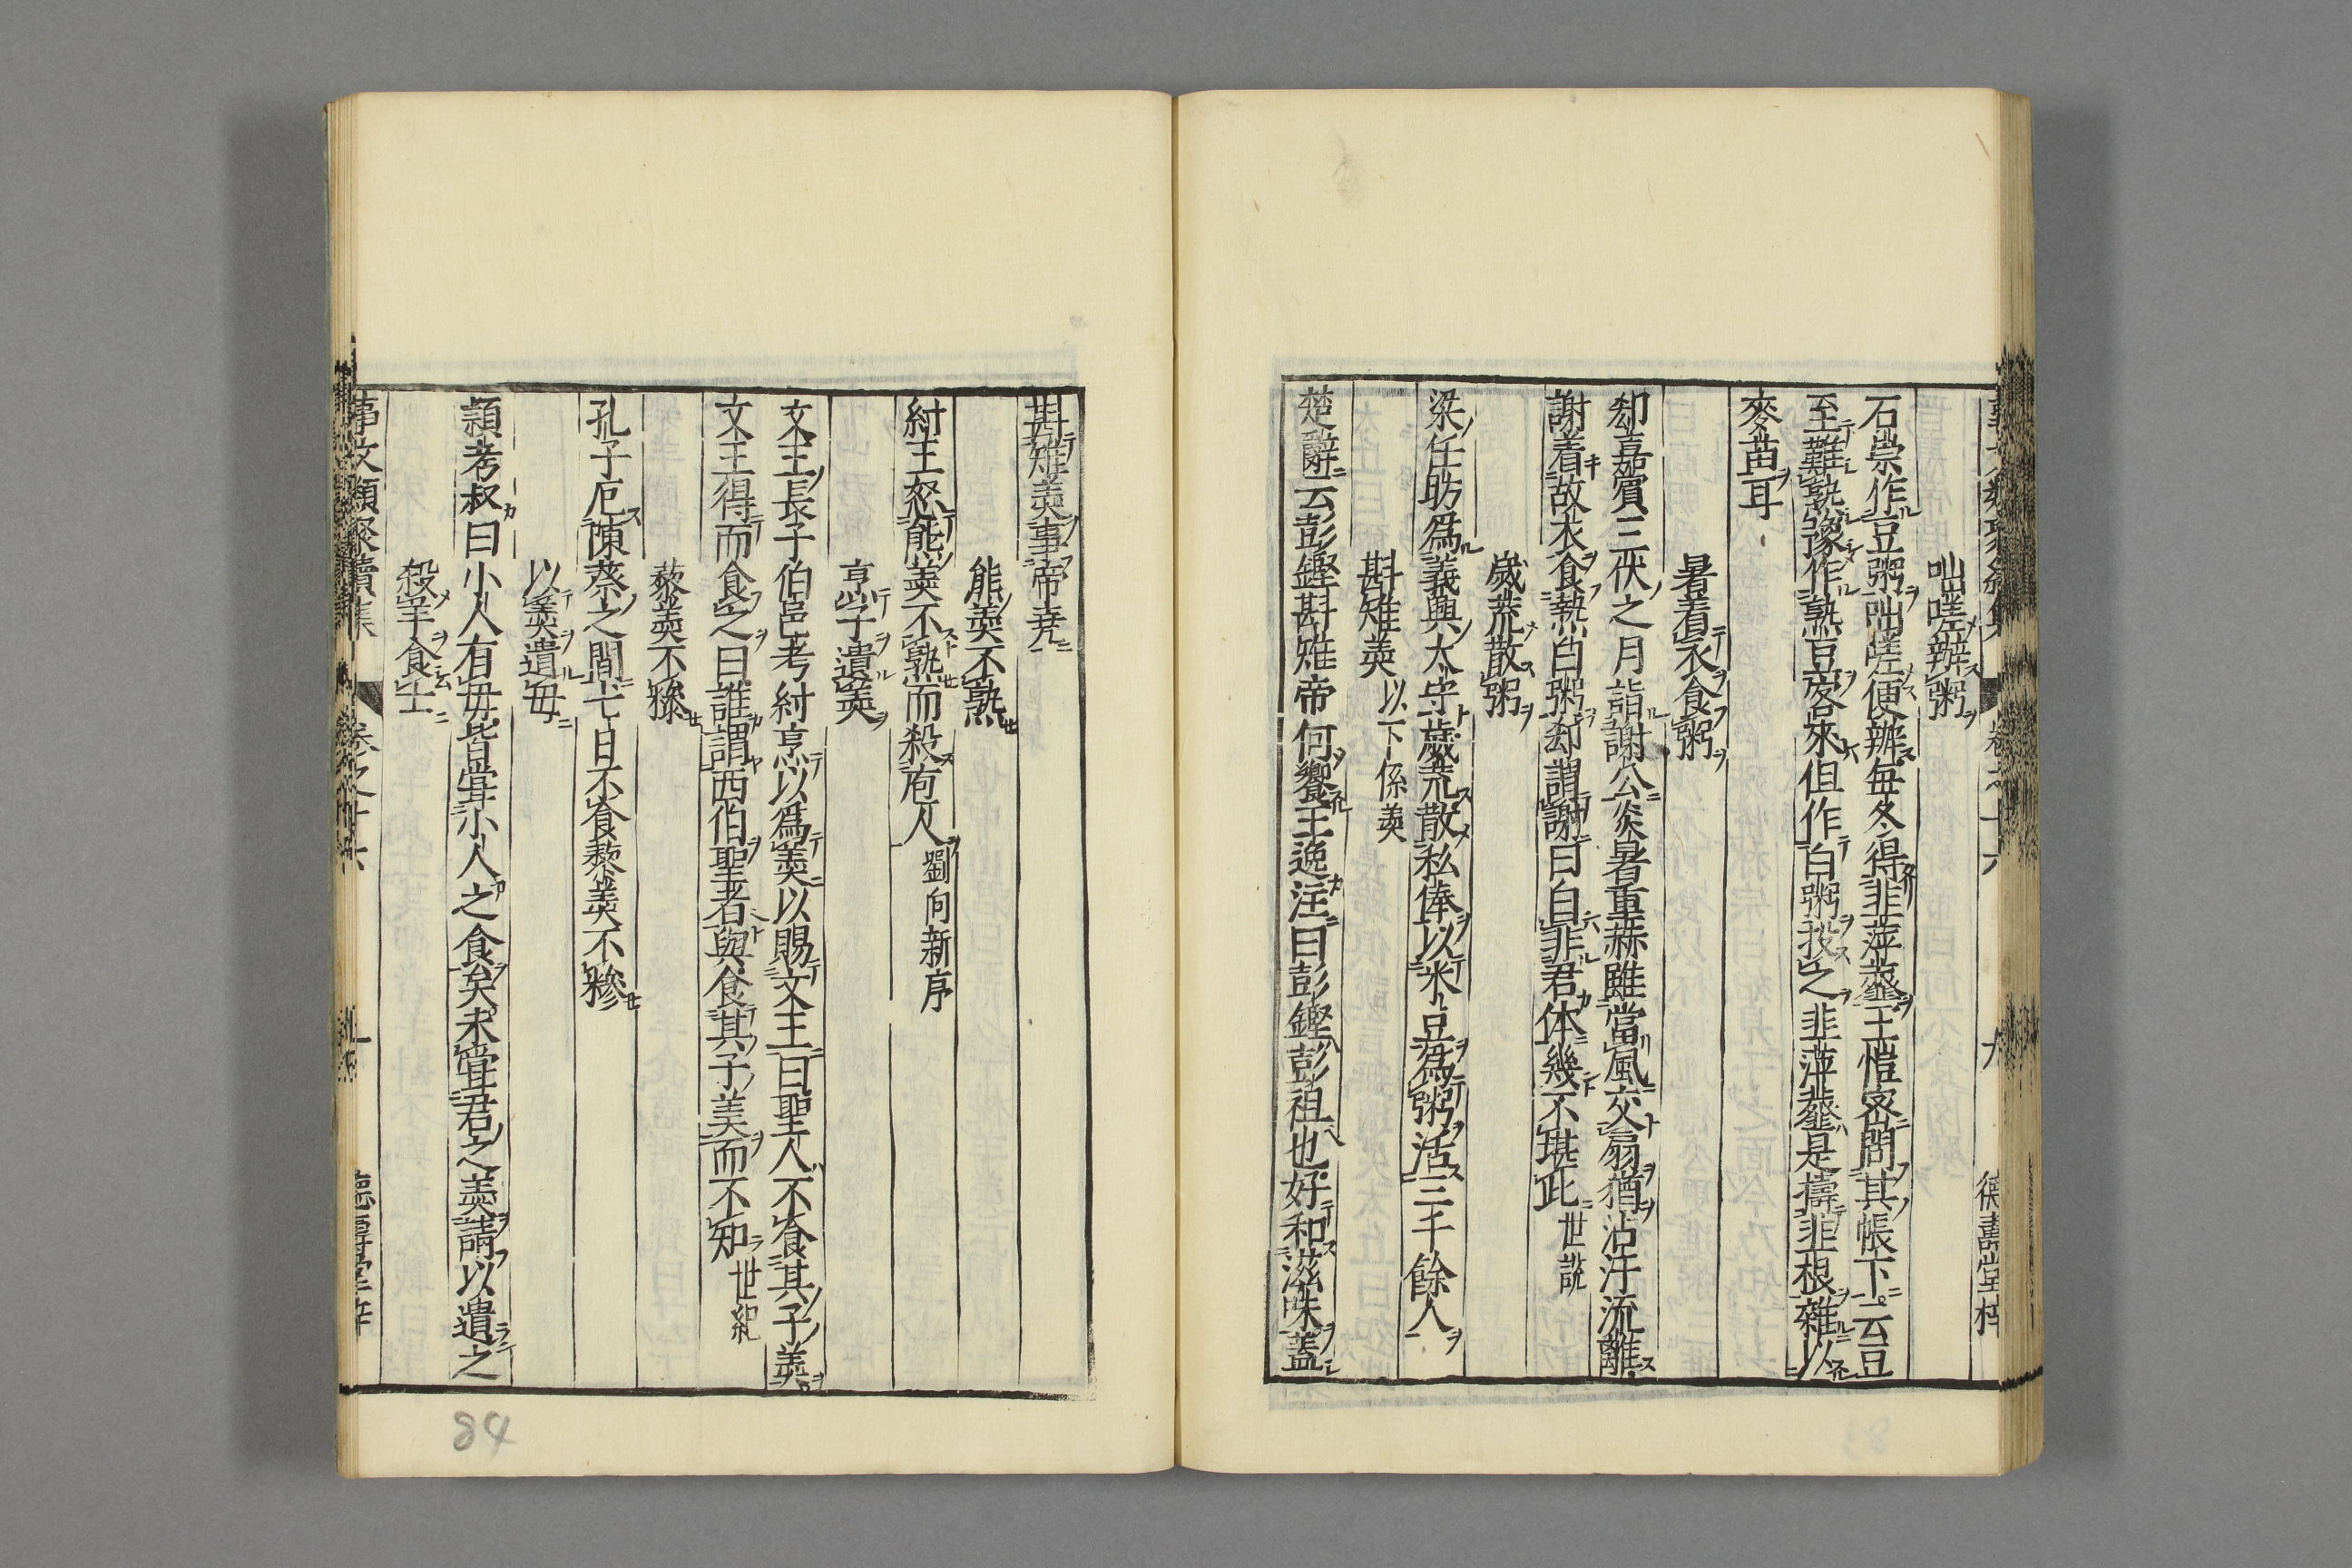 咄嗟辦粥
石崇作豆粥咄嗟便辦每冬得韭萍虀王愷密問其帳下云豆
至難熟豫作熟豆客來但作白粥投之韭萍虀是擣韭根雜以
麥苗耳
暑着衣食粥
郄嘉賓三伏之月詣謝公炎暑重赫雖當風交扇猶沾汗流離
謝着故衣食熱白粥郄謂謝曰自非君体幾不堪此世說
歲荒散粥
梁任昉爲義興太守歲荒散私俸以米豆爲粥活三千餘人
斟雉羹以下係羹
楚辭云彭鏗斟雉帝何饗王逸注曰彭鏗彭祖也好和滋味蓋
斟雉羹事帝堯
熊羹不熟
紂王怒熊羹不熟而殺庖人劉向新序
烹子遺羹
文王長子伯邑考紂烹以爲羹以賜文王曰聖人不食其子羹
文王得而食之曰誰謂西伯聖者與食其子羹而不知世紀
藜羹不糝
孔子厄陳蔡之間七日不食藜羹不糝
以羹遺母
頴考叔曰小人有母皆嘗小人之食矣未嘗君之羹請以遺之
殺羊食士
事文類聚續集 卷之十六 九 德壽堂梓
84